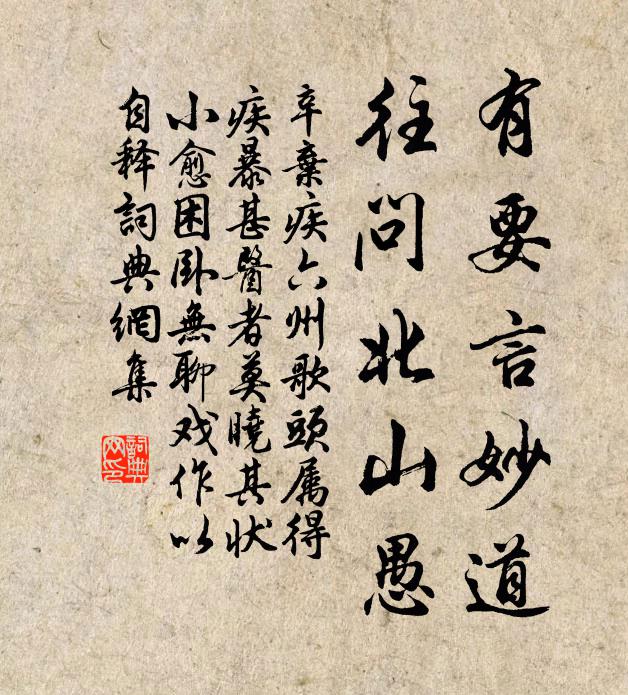 有要言妙道
往问北山愚
辛棄疾六州歌頭属得
疾暴甚醫者莫曉其状
小愈困卧無聊戏作以
自释詞典網集
詞典
网印